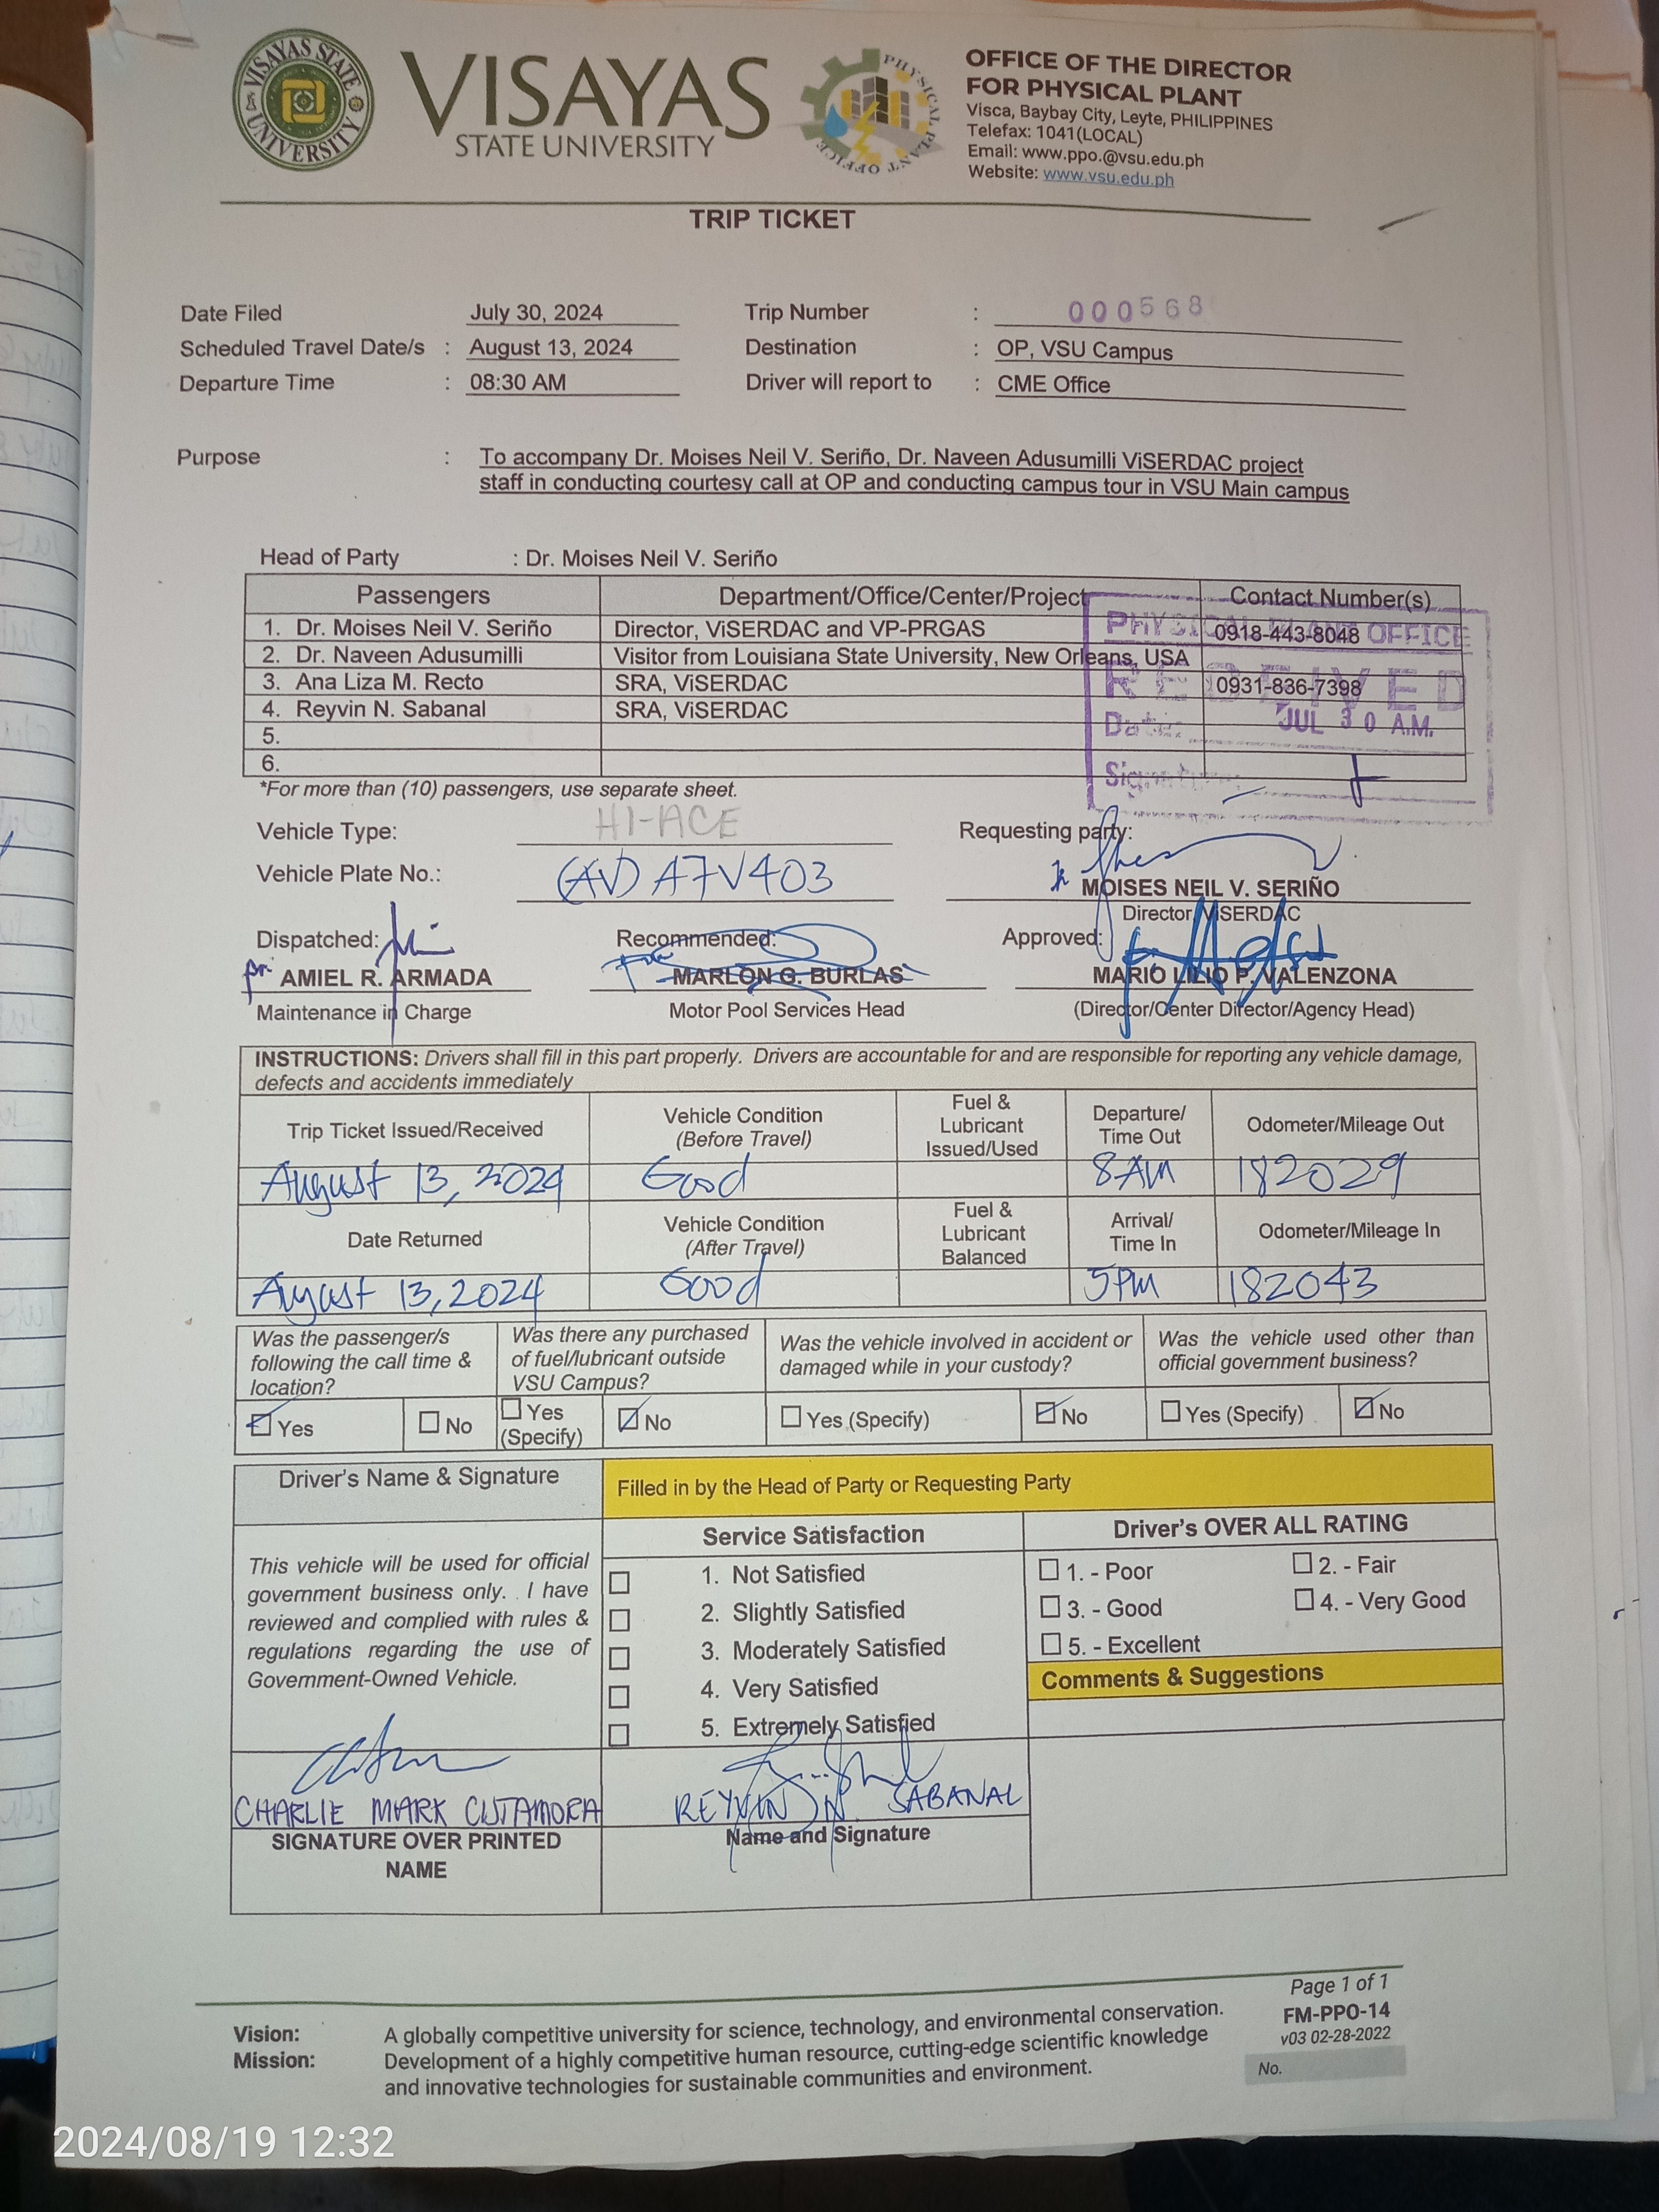 VISAYAS STATE UNIVERSITY
VISAYAS
STATE UNIVERSITY
PHYSICAL PLANT OFFICE
OFFICE OF THE DIRECTOR
FOR PHYSICAL PLANT
Visca, Baybay City, Leyte, PHILIPPINES
Telefax: 1041(LOCAL)
Email: www.ppo.@vsu.edu.ph
Website: www.vsu.edu.ph
TRIP TICKET
Date Filed July 30, 2024 Trip Number : 000568
Scheduled Travel Date/s : August 13, 2024 Destination : OP, VSU Campus
Departure Time : 08:30 AM Driver will report to : CME Office
Purpose : To accompany Dr. Moises Neil V. Seriño, Dr. Naveen Adusumilli ViSERDAC project
staff in conducting courtesy call at OP and conducting campus tour in VSU Main campus
Head of Party : Dr. Moises Neil V. Seriño
Passengers Department/Office/Center/Project Contact Number(s)
1. Dr. Moises Neil V. Seriño Director, ViSERDAC and VP-PRGAS 0918-443-8048
2. Dr. Naveen Adusumilli Visitor from Louisiana State University, New Orleans, USA
3. Ana Liza M. Recto SRA, ViSERDAC 0931-836-7398
4. Reyvin N. Sabanal SRA, ViSERDAC
5.
6.
PHYSICAL PLANT OFFICE
RECEIVED
Date: JUL 30 A.M.
*For more than (10) passengers, use separate sheet.
Vehicle Type: HI-ACE Requesting party:
Vehicle Plate No.: (AV) A7V403 MOISES NEIL V. SERIÑO
Director, ViSERDAC
Dispatched: Recommended: Approved:
AMIEL R. ARMADA MARLON G. BURLAS MARIO LILIO P. VALENZONA
Maintenance in Charge Motor Pool Services Head (Director/Center Director/Agency Head)
INSTRUCTIONS: Drivers shall fill in this part properly. Drivers are accountable for and are responsible for reporting any vehicle damage,
defects and accidents immediately
Trip Ticket Issued/Received Vehicle Condition (Before Travel) Fuel & Lubricant Issued/Used Departure/ Time Out Odometer/Mileage Out
August 13, 2024 Good 8AM 182029
Date Returned Vehicle Condition (After Travel) Fuel & Lubricant Balanced Arrival/ Time In Odometer/Mileage In
August 13, 2024 Good 5PM 182043
Was the passenger/s following the call time & location? Was there any purchased of fuel/lubricant outside VSU Campus? Was the vehicle involved in accident or damaged while in your custody? Was the vehicle used other than official government business?
Yes No Yes (Specify) No Yes (Specify) No Yes (Specify) No
Driver's Name & Signature Filled in by the Head of Party or Requesting Party
Service Satisfaction Driver's OVER ALL RATING
This vehicle will be used for official
government business only. I have
reviewed and complied with rules &
regulations regarding the use of
Government-Owned Vehicle.
1. Not Satisfied
2. Slightly Satisfied
3. Moderately Satisfied
4. Very Satisfied
5. Extremely Satisfied
1. - Poor 2. - Fair
3. - Good 4. - Very Good
5. - Excellent
Comments & Suggestions
CHARLIE MARK CUTAMORA REYVIN N. SABANAL
SIGNATURE OVER PRINTED
NAME
Name and Signature
Page 1 of 1
FM-PPO-14
v03 02-28-2022
No.
Vision: A globally competitive university for science, technology, and environmental conservation.
Mission: Development of a highly competitive human resource, cutting-edge scientific knowledge
and innovative technologies for sustainable communities and environment.
2024/08/19 12:32